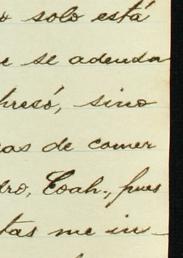 o solo está
e se adeuda
presó, sino
as de comer
dro, Coah., pues
tas me in-